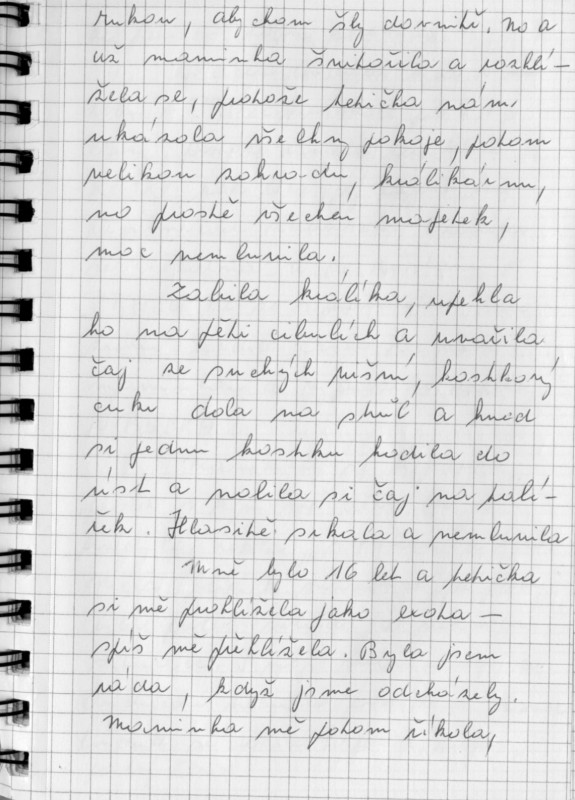 rukou, abychom šly dovnitř. No a
už maminka šnitořila a rozhlí-
žela se, protože tetička nám
ukázala všechny pokoje, potom
velikou zahradu, králikárnu,
no prostě všechen majetek,
moc nemluvila.
Zabila králíka, upekla
ho na pěti cibulích a uvařila
čaj ze suchých višní, kostkový
cukr dala na stůl a hned
si jednu kostku hodila do
úst a nalila si čaj na talí-
řek. Hlasitě srkala a nemluvila
Mně bylo 16 let a tetička
si mě prohlížela jako exota –
spíš mě přehlížela. Byla jsem
ráda, když jsme odcházely.
Maminka mě potom říkala,